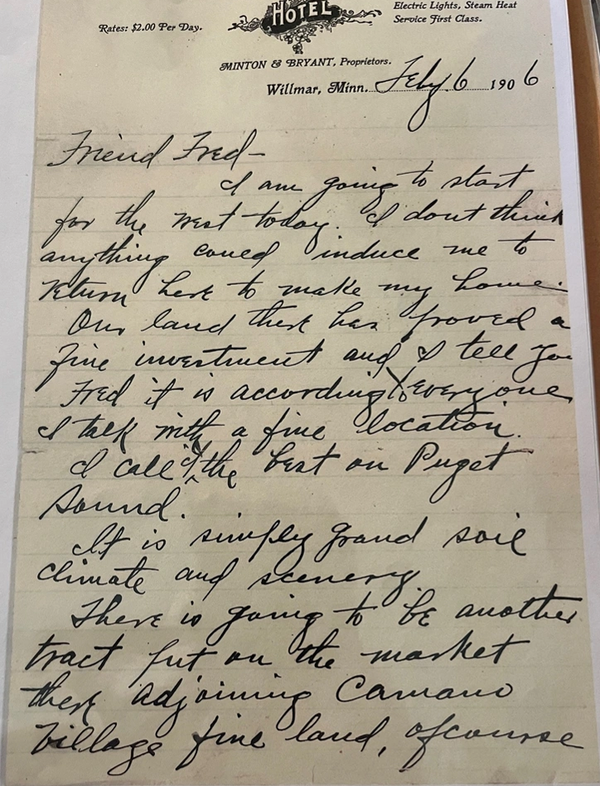 HOTEL
Rates: $2.00 Per Day.
Electric Lights, Steam Heat
Service First Class.
MINTON & BRYANT, Proprietors.
Willmar, Minn. Feby 6 1906
Friend Fred—
I am going to start
for the west today. I dont think
anything coued induce me to
return here to make my home.
Our land there has proved a
fine investment and I tell you
Fred it is according to everyone
I talk with a fine location.
I call it the best on Puget
Sound.
It is simply grand soil
climate and scenery
There is going to be another
tract put on the market
there adjoining Camano
Village fine land, ofcourse